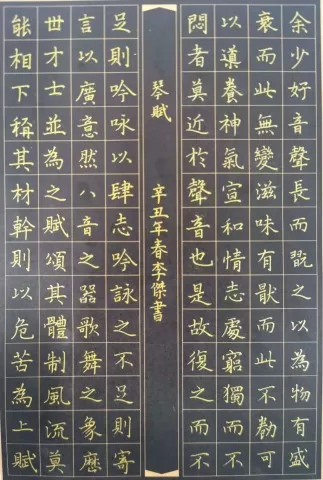 余少好音聲長而翫之以為物有盛
衰而此無變滋味有猒而此不勌可
以導養神氣宣和情志處窮獨而不
悶者莫近於聲音也是故復之而不
琴賦 辛丑年春李傑書
足則吟咏以肆志吟詠之不足則寄
言以廣意然八音之噐歌舞之象歷
世才士並為之賦頌其體制風流莫
能相下稱其材幹則以危苦為上賦